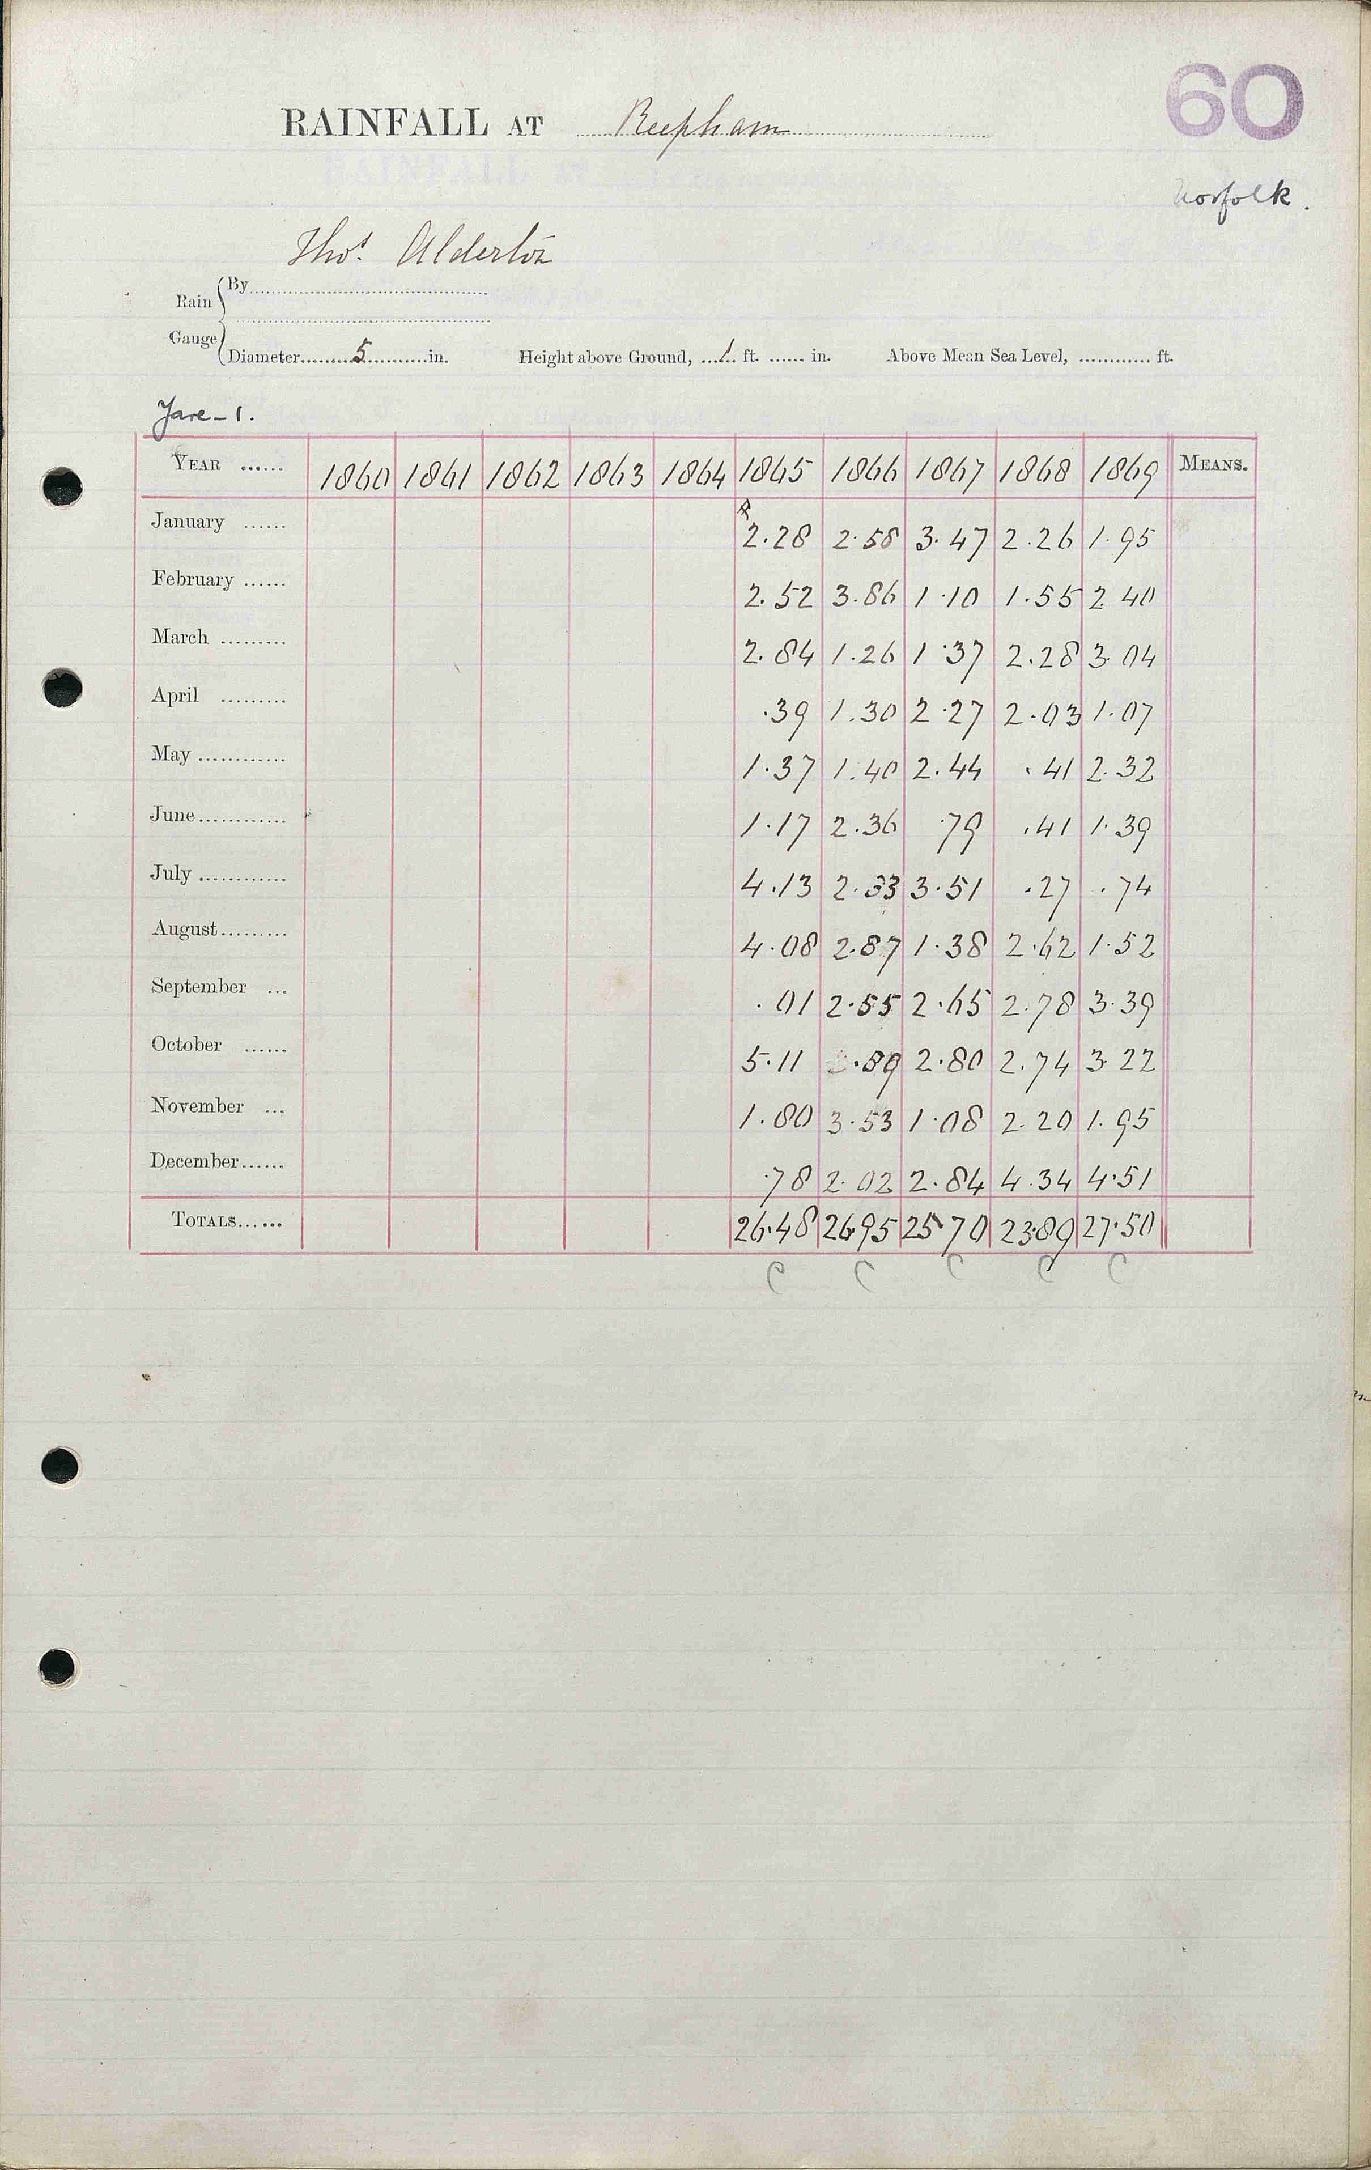 60
RAINFALL AT Reepham
Norfolk.
Thos. Alderton
Rain Gauge
By
Diameter 5 in. Height above Ground, 1 ft. in. Above Mean Sea Level, ft.
Yare - 1.
YEAR 1860 1861 1862 1863 1864 1865 1866 1867 1868 1869 MEANS.
January 2.28 2.58 3.47 2.26 1.95
February 2.52 3.86 1.10 1.55 2.40
March 2.84 1.26 1.37 2.28 3.04
April .39 1.30 2.27 2.03 1.07
May 1.37 1.40 2.44 .41 2.32
June 1.17 2.36 .79 .41 1.39
July 4.13 2.33 3.51 .27 .74
August 4.08 2.87 1.38 2.62 1.52
September .01 2.55 2.65 2.78 3.39
October 5.11 .89 2.80 2.74 3.22
November 1.80 3.53 1.08 2.20 1.95
December .78 2.02 2.84 4.34 4.51
TOTALS 26.48 26.95 25.70 23.89 27.50
C C C C C